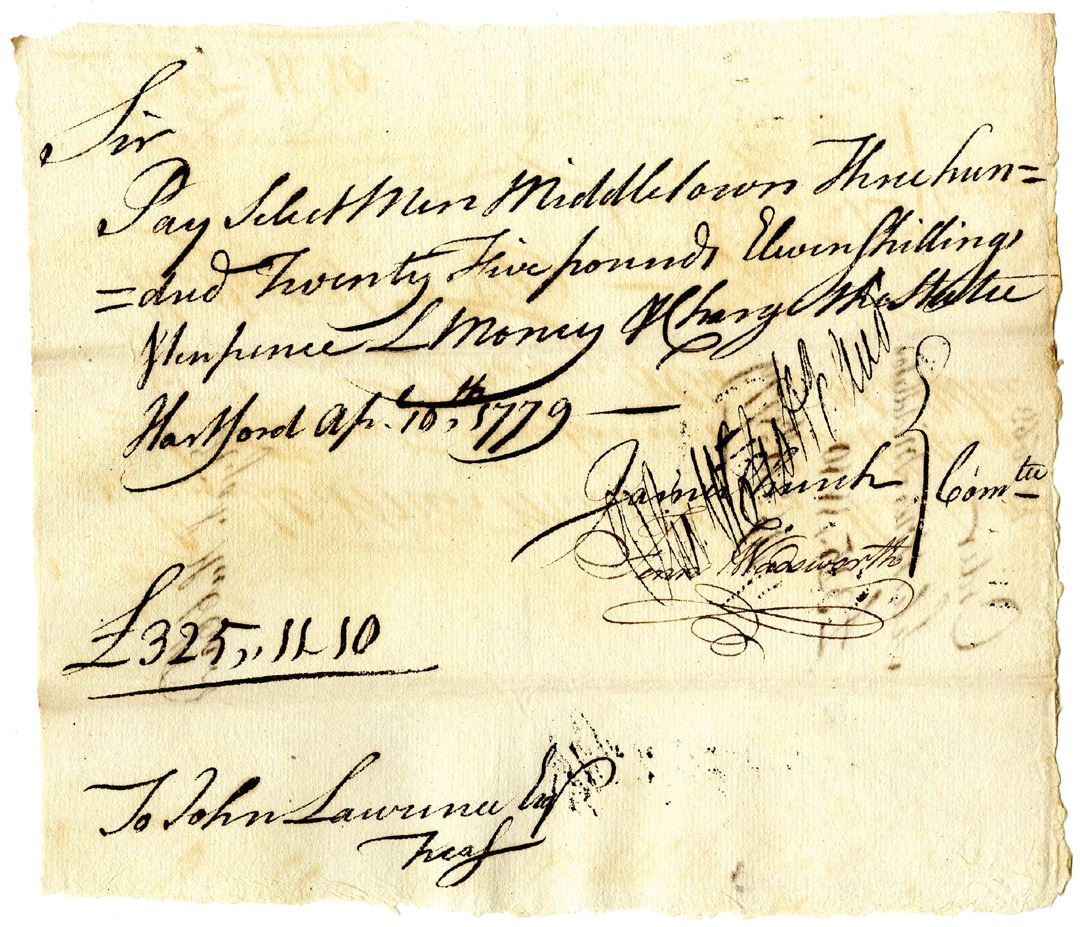 Sir
Pay Select Men Middletown Three hun=
=dred Twenty Five pounds Eleven Shillings
& ten pence L Money & Charge the State
Hartford Apl. 10th, 1779
James Church
Fenn Wadsworth
Comtee
£325,,11 10
To John Lawrence Esqr
Treasr